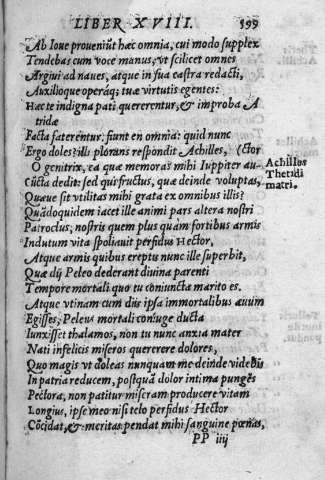 LIBER XVIII. 599
Ab Ioue proueniūt hæc omnia, cui modo supplex
Tendebas cum voce manus; vt scilicet omnes
Argiui ad naues, atque in sua castra redacti,
Auxilioque operáq; tuæ virtutis egentes:
Hæc te indigna pati quererentur, & improba A
tridæ
Facta faterentur, fiunt en omnia: quid nunc
Ergo doles? illi plorans respondit Achilles, (ctor
O genitrix, ea quæ memoras mihi Iuppiter au-
Cūcta dedit: sed quis fructus, quæ deinde voluptas,
Quæue sit vtilitas mihi grata ex omnibus illis?
Quādoquidem iacet ille animi pars altera nostri
Patroclus, nostris quem plus quàm fortibus armis
Indutum vita spoliauit perfidus Hector,
Atque armis quibus ereptis nunc ille superbit,
Quæ dij Peleo dederant diuina parenti
Tempore mortali quo tu coniuncta marito es.
Atque vtinam cum diis ipsa immortalibus æuum
Egisses; Peleus mortali coniuge ducta
Iunxisset thalamos, non tu nunc anxia mater
Nati infelicis miseros quererere dolores,
Quo magis vt doleas nunquam me deinde videbis
In patria reducem, postquā dolor intima pungēs
Pectora, non patitur miseram producere vitam
Longius, ipse meo nisi telo perfidus Hector
Cōcidat, & meritas pendat mihi sanguine pœnas,
PP iiij
Achilles
Thetidi
matri.